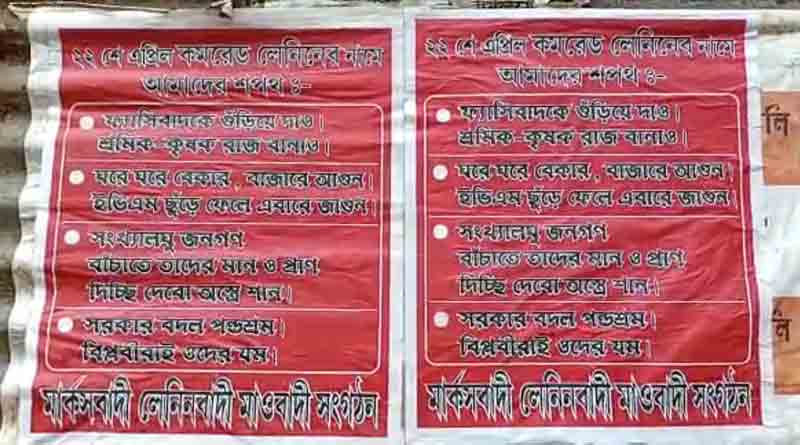 ২২ শে এপ্রিল কমরেড লেনিনের নামে
আমাদের শপথ ঃ-
ফ্যাসিবাদকে গুঁড়িয়ে দাও।
শ্রমিক-কৃষক রাজ বানাও।
ঘরে ঘরে বেকার, বাজারে আগুন।
ইভিএম ছুঁড়ে ফেলে এবারে জাগুন।
সংখ্যালঘু জনগণ
বাঁচাতে তাদের মান ও প্রাণ
দিচ্ছি দেবো অস্ত্রে শান।
সরকার বদল পন্ডশ্রম।
বিপ্লবীরাই ওদের যম।
মার্কসবাদী লেনিনবাদী মাওবাদী সংগঠন
২২ শে এপ্রিল কমরেড লেনিনের নামে
আমাদের শপথ ঃ-
ফ্যাসিবাদকে গুঁড়িয়ে দাও।
শ্রমিক-কৃষক রাজ বানাও।
ঘরে ঘরে বেকার, বাজারে আগুন।
ইভিএম ছুঁড়ে ফেলে এবারে জাগুন।
সংখ্যালঘু জনগণ
বাঁচাতে তাদের মান ও প্রাণ
দিচ্ছি দেবো অস্ত্রে শান।
সরকার বদল পন্ডশ্রম।
বিপ্লবীরাই ওদের যম।
মার্কসবাদী লেনিনবাদী মাওবাদী সংগঠন